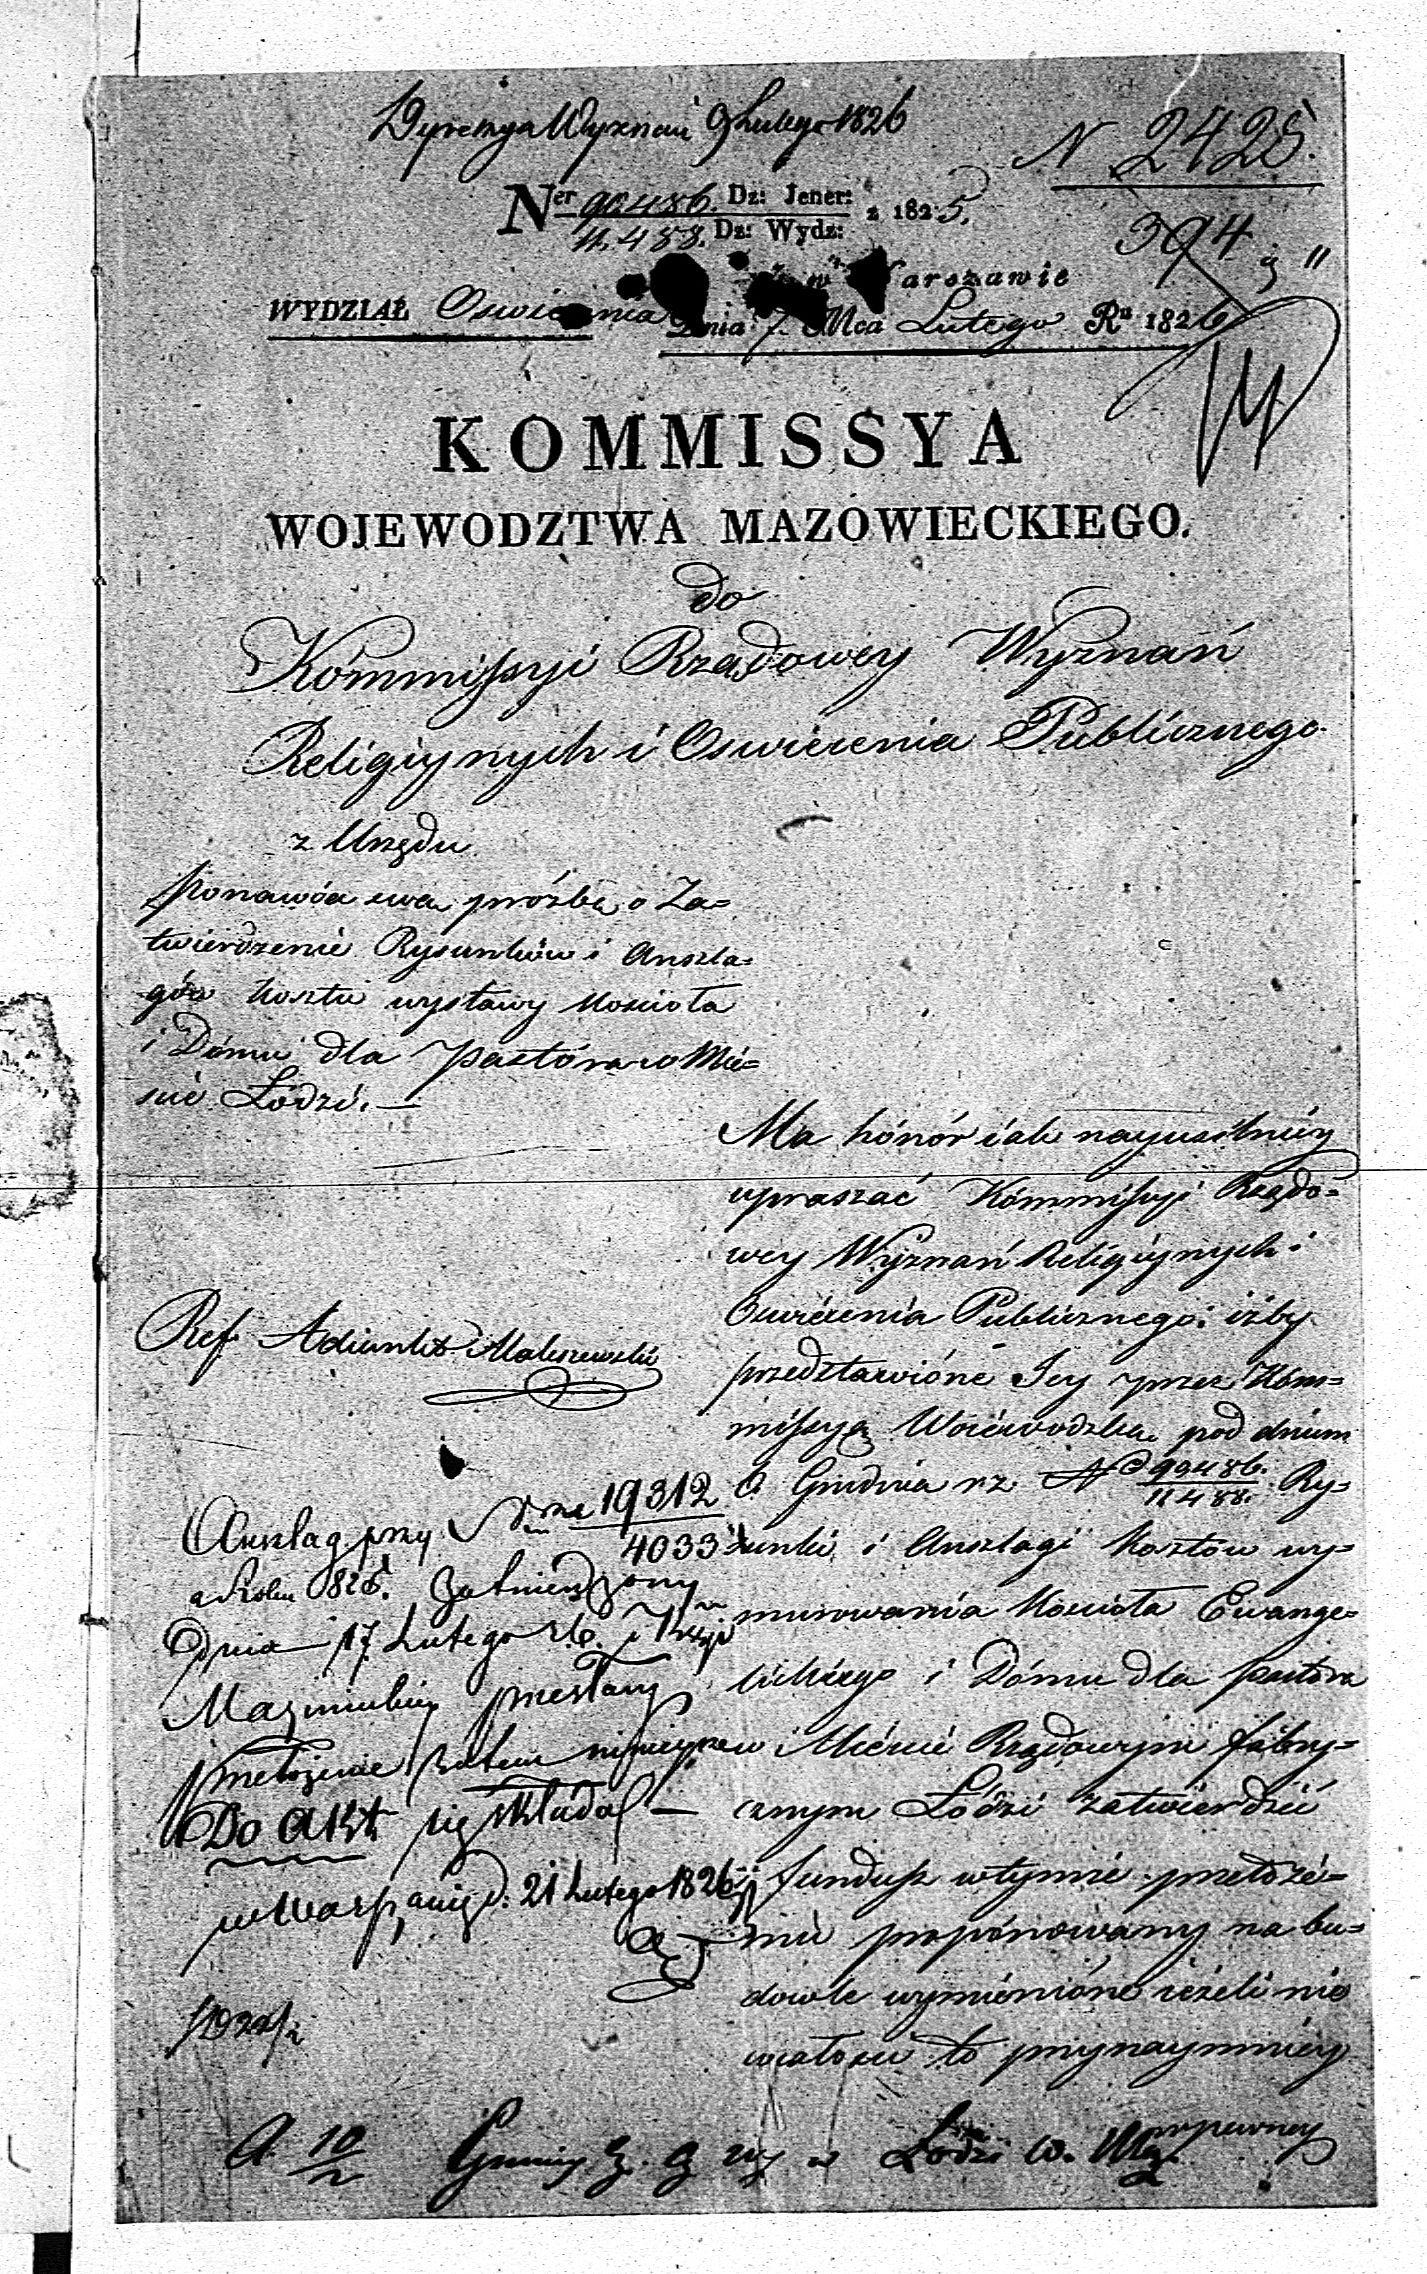 Dyrekcya Wyznań 9 Lutego 1826
N 2425.
Ner 90486. Dz: Jener: z 1825.
11.488. Dz: Wydz:
394
w Warszawie
WYDZIAŁ Oswiecenia Dnia 7. Mca Lutego Ru 1826
KOMMISSYA
WOJEWODZTWA MAZOWIECKIEGO.
do
Kommissyi Rządowey Wyznań
Religiynych i Oswiecenia Publicznego.
z Urzędu
ponawia swą prózbę o Za=
twierdzenie Rysunków i Anszla=
gów kosztu wystawy Koscioła
i Dómu dla Pastóra w Mie=
scie Łodzi. —
Ma hónór iak nayusilniéy
upraszać Kómmissyi Rządo=
wey Wyznań Religiynych i
Oswiecenia Publicznego: iżby
przedstawióne Jey przez Kóm=
missyą Woiéwodzką pod dniem
Grudnia rz. No 90486. Ry=
11488.
sunki i Anszlagi kosztów wy=
murowania Koscioła Ewange=
lickiego i Dómu dla pastóra
w Miéscie Rządowym fabry=
cznym Łódzi zatwierdzić
fundusz w tymże przełożé=
niu propónowany na bu=
dowle wymiénióne ieżeli nie
w całosci to przynaymniéy
wpewney
Ref. Adiunkt Maliszewski
Anszlag przy Nrze 19312
4033
z Roku 1825. Zatwierdzony
dnia 17 Lutego rb. i
Mazowieckiey przesłany
przełożenie zatem ninieysze
Do Akt się składa —
w Warszawie d. 21 Lutego 1826
A 10/2 Gminy w Łodzi W. Maz.